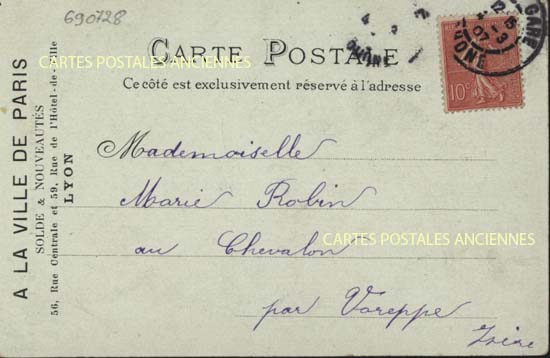 690728
CARTE POSTALE
CARTES POSTALES ANCIENNES
Ce côté est exclusivement réservé à l'adresse
A LA VILLE DE PARIS
SOLDE & NOUVEAUTÉS
56, Rue Centrale et 59, Rue de l'Hôtel-de-Ville
LYON
GARE
RHONE
10c
Mademoiselle
Marie Robin
au Chevalon
CARTES POSTALES ANCIENNES
par Voreppe
Isère